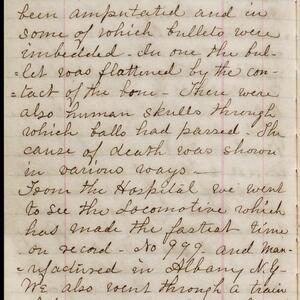 been amputated and in
some of which bullets were
imbedded. In one the bul-
=let was flattened by the con-
=tact of the bone - There were
also human skulls through
which balls had passed. The
cause of death was shown
in various ways -
From the Hospital we went
to see the Locomotive which
has made the fastest time
on record - No 999 and Man-
=ufactured in Albany N.Y.
We also went through a train